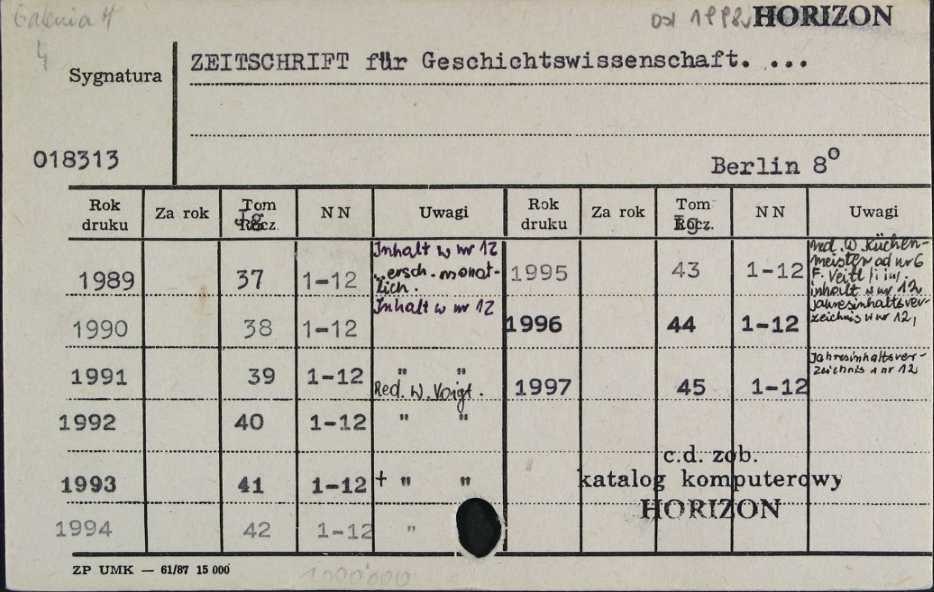 Galeria 4
od 1998 HORIZON
4
Sygnatura
ZEITSCHRIFT für Geschichtswissenschaft. ...
018313
Berlin 8°
Rok druku Za rok Tom Rocz. Jg NN Uwagi Rok druku Za rok Tom Rocz. Jg NN Uwagi
1989 37 1-12 Inhalt w nr 12 ersch. monat-lich. 1995 43 1-12 red. W. Küchen-meister ad nr 6 F. Veitl
inhalt w nr 12,
1990 38 1-12 Inhalt w nr 12 1996 44 1-12 Jahresinhaltsver-zeichnis w nr 12,
1991 39 1-12 " " 1997 45 1-12 Jahresinhaltsver-zeichnis nr 12
Red. W. Voigt.
1992 40 1-12 " "
c.d. zob.
1993 41 1-12 + " " katalog komputerowy
HORIZON
1994 42 1-12 "
ZP UMK — 61/87 15 000
1000'000